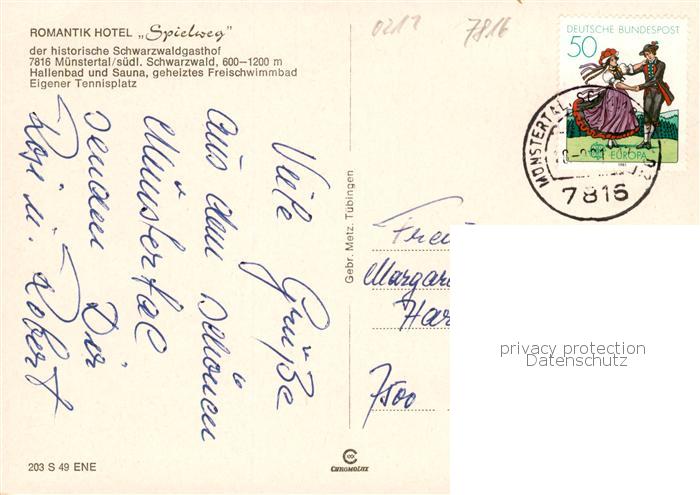 ROMANTIK HOTEL „Spielweg"
der historische Schwarzwaldgasthof
7816 Münstertal/südl. Schwarzwald, 600–1200 m
Hallenbad und Sauna, geheiztes Freischwimmbad
Eigener Tennisplatz
Viele Grüße
aus dem schönen
Münstertal
senden Dir
Rosi u. Robert
203 S 49 ENE
Gebr. Metz, Tübingen
CHROMOLUX
0212
7816
DEUTSCHE BUNDESPOST
50
EUROPA
1981
MÜNSTERTAL
7816
Margar
Har
7500
privacy protection
Datenschutz